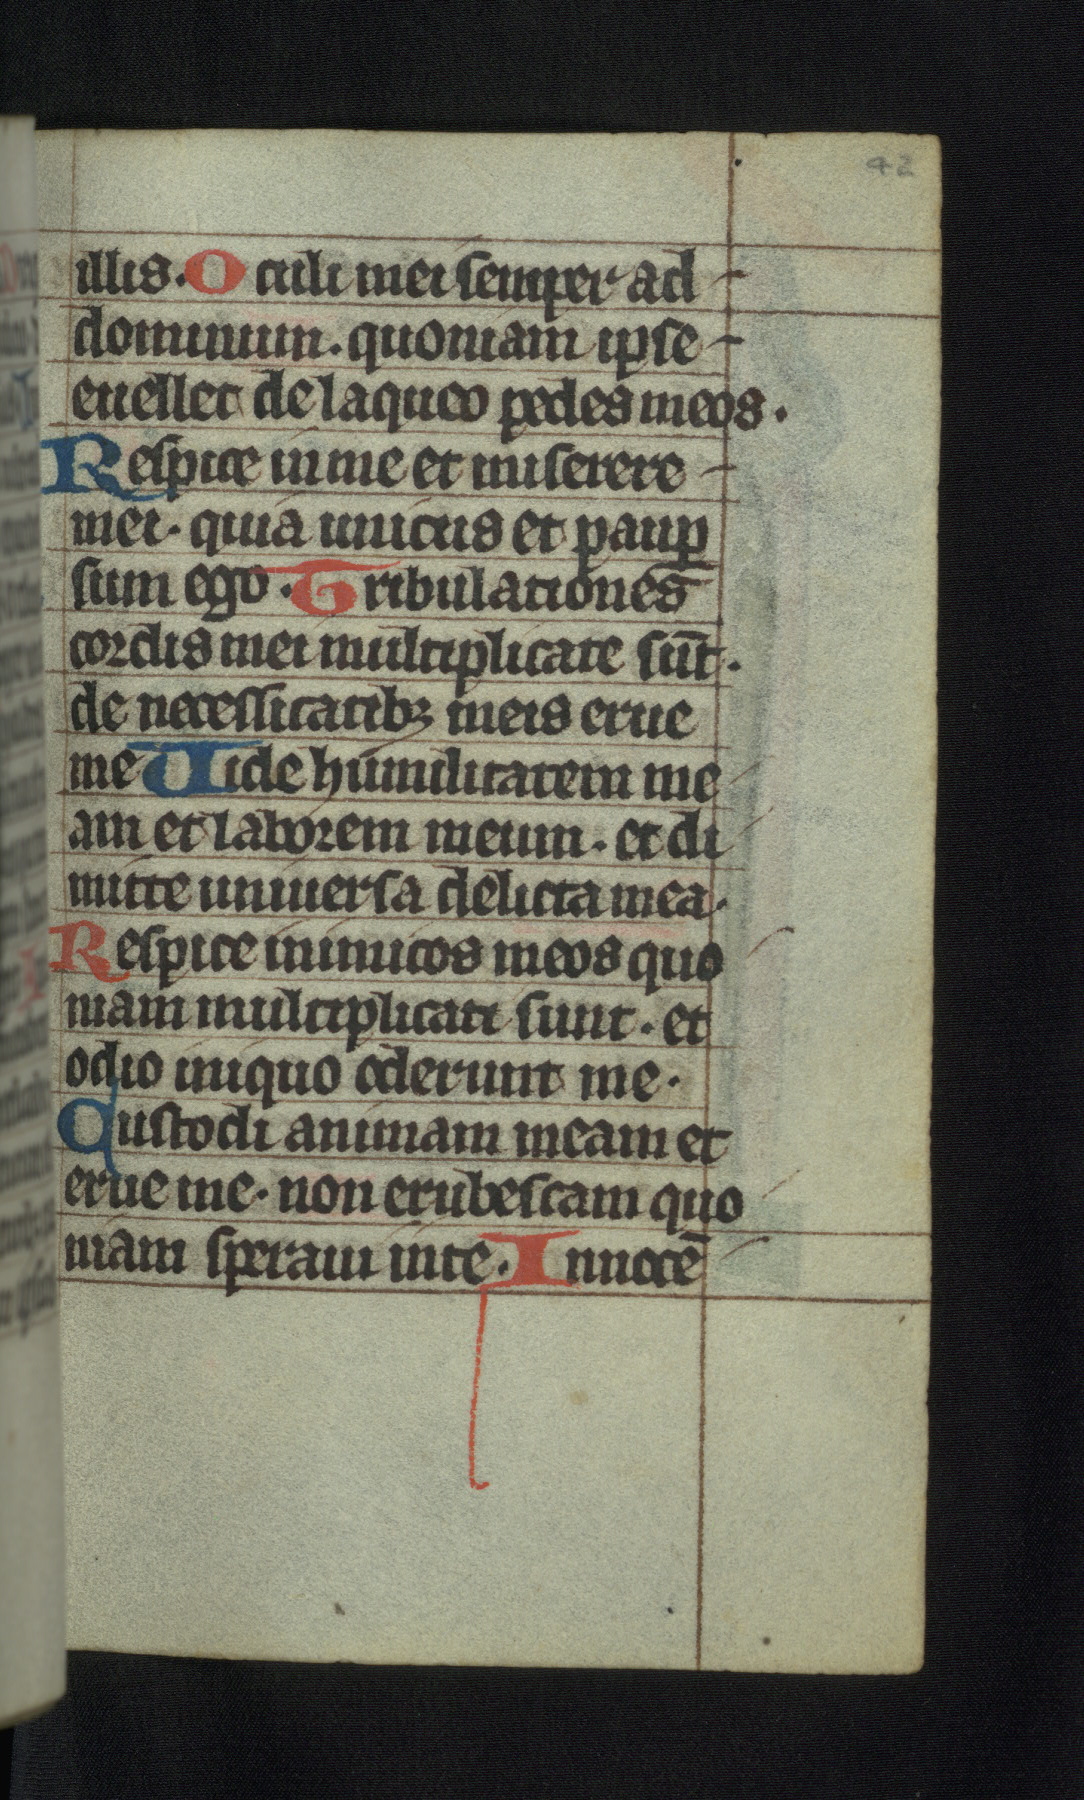 42
illis. Oculi mei semper ad
dominum. quoniam ipse
euellet de laqueo pedes meos.
Respice in me et miserere
mei. quia unicus et paup̲
sum ego. Tribulationes
cordis mei multiplicate sūt.
de necessitatibꝫ meis erue
me Uide humilitatem me
am et laborem meum. et di
mitte uniuersa delicta mea.
Respice inimicos meos quo
niam multiplicati sunt. et
odio iniquo oderunt me.
Custodi animam meam et
erue me. non erubescam quo
niam speraui in te. Innocē